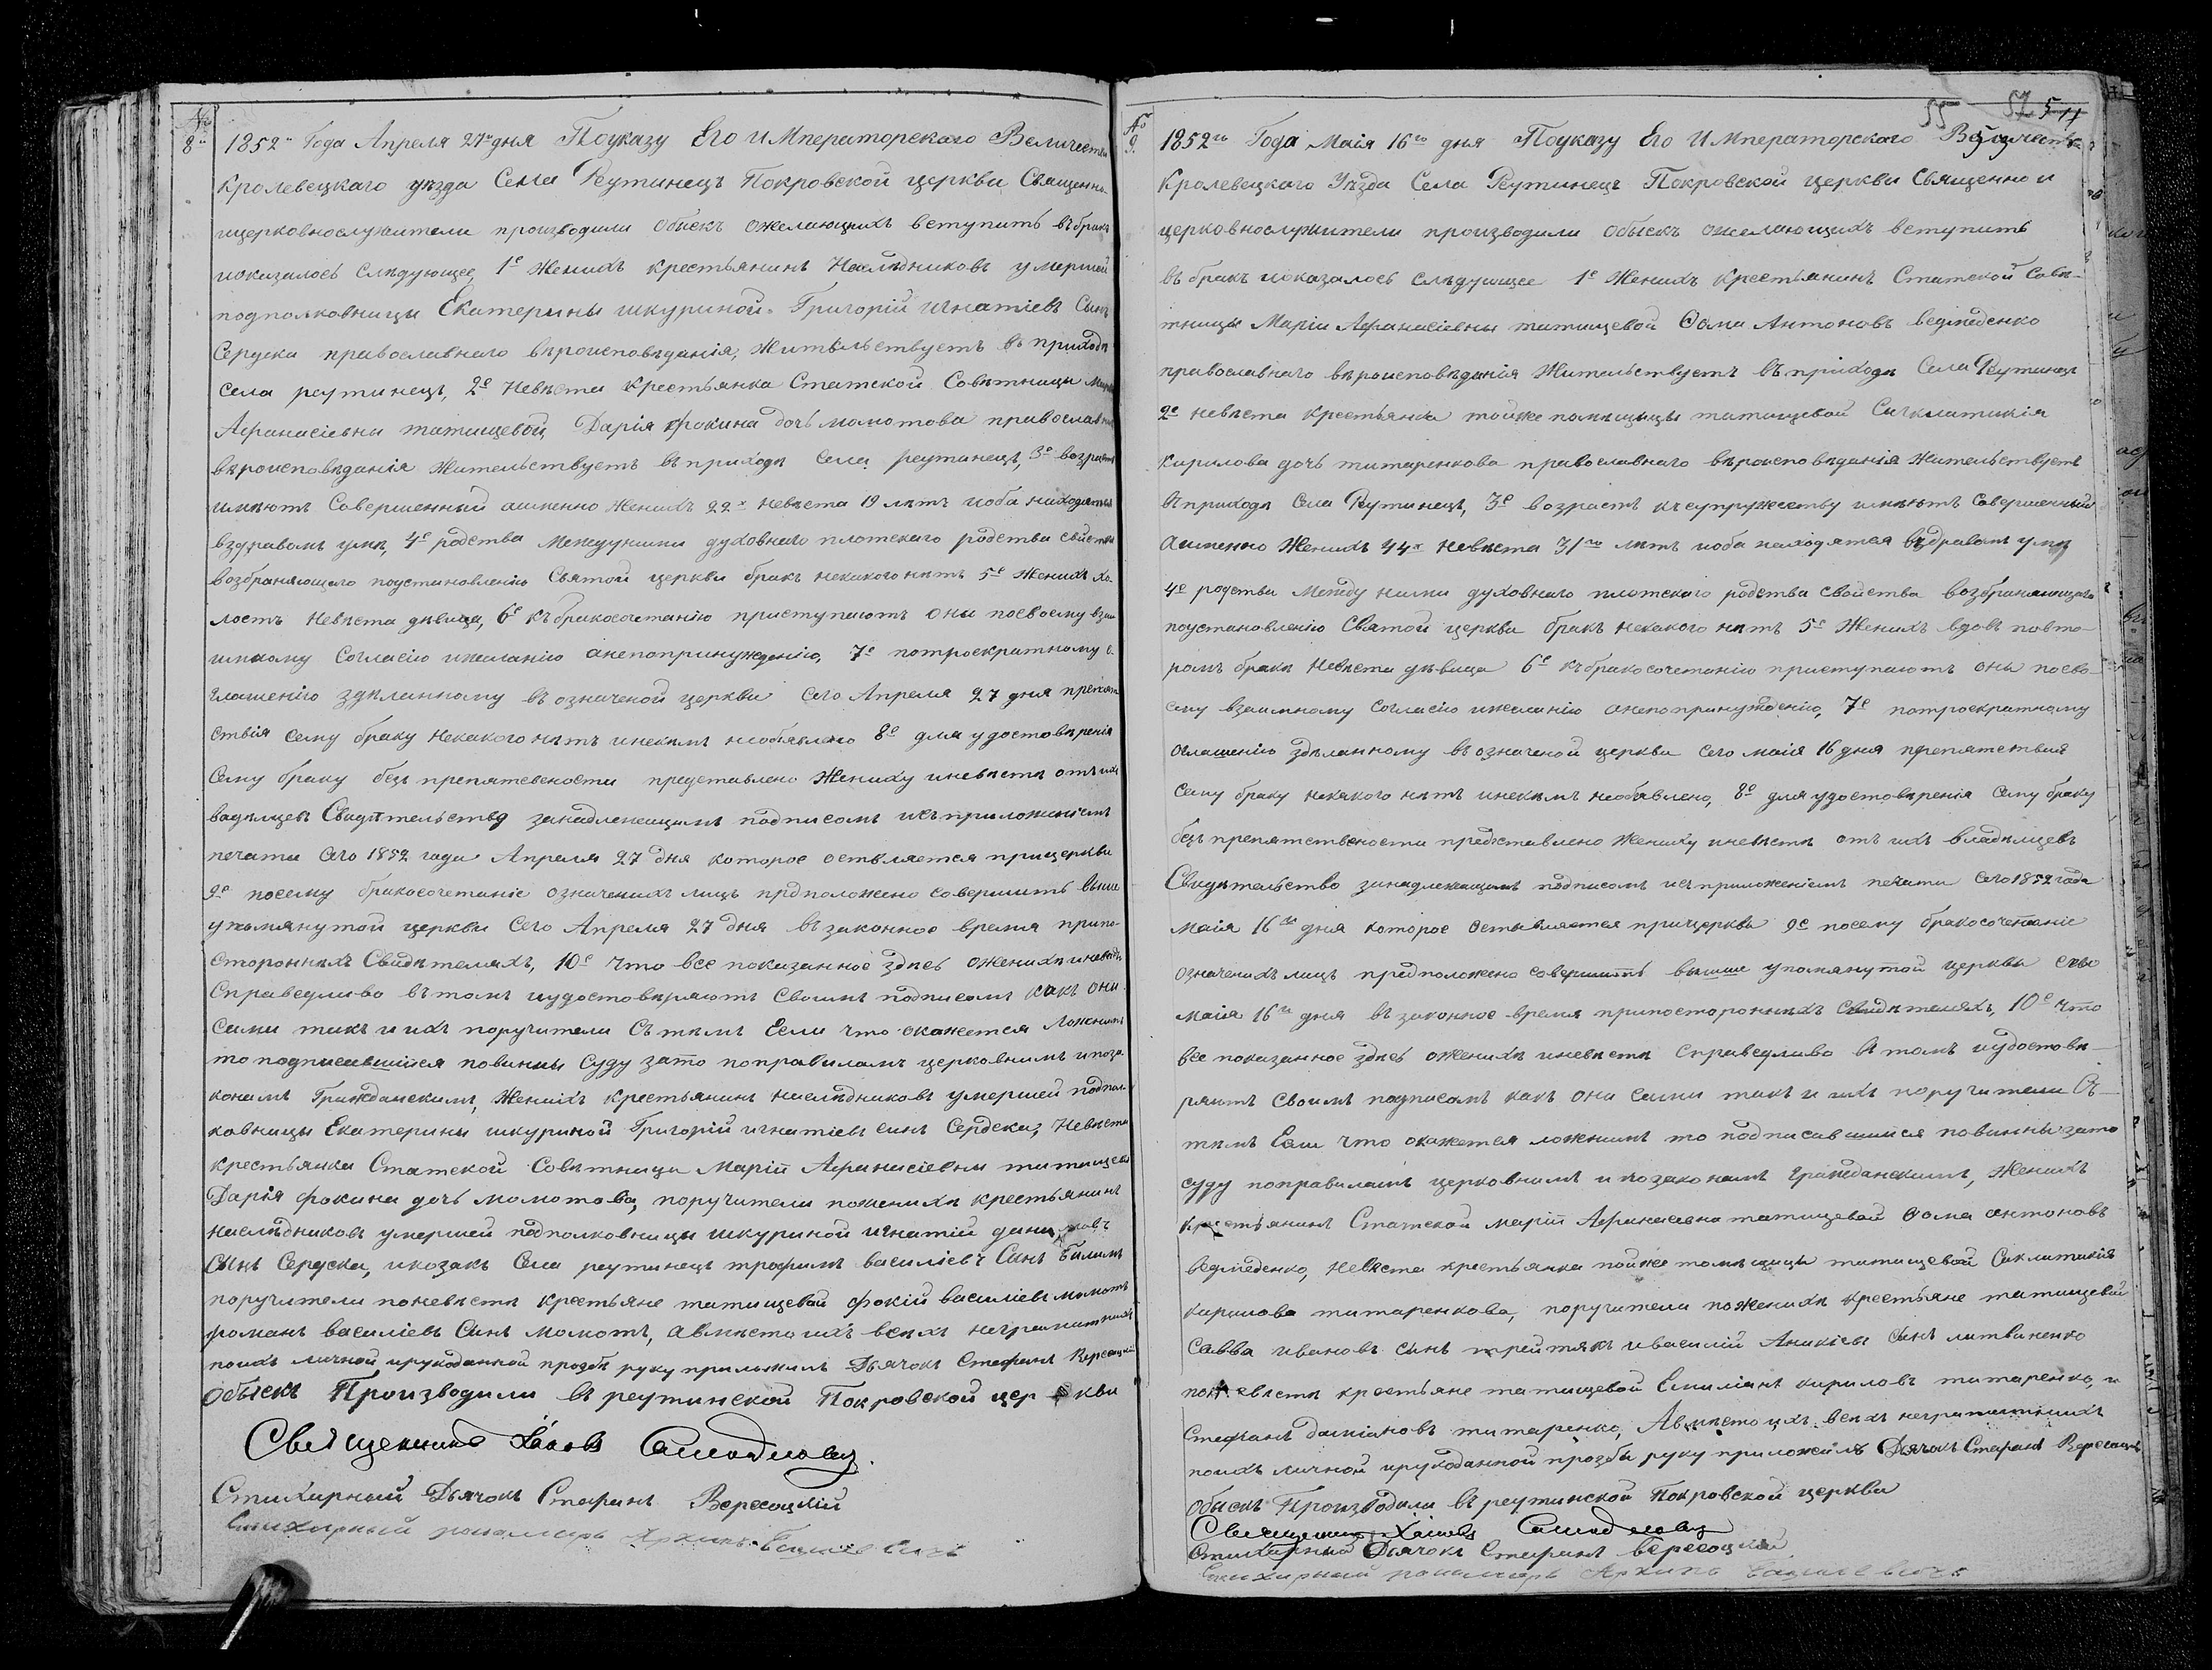 № 8й
1852го Года Апреля 27го дня Поуказу Его Императорского Величества
Кролевецкаго уезда Села Реутинецъ Покровской церкви Священно-
ицерковнослужители производили обискъ ожелающихъ вступить въбракъ
иоказалось слѣдующее 1е Женихъ крестьянинъ Наслѣдниковъ умершей
подполковницы Екатерины шкуриной Григорій игнатіевъ Сынъ
Сердека православнаго вѣроисповѣданія, Жительствуетъ въ приходѣ
села реутинецъ, 2е Невѣста крестьянка Статской Совѣтницы Маріи
Афанасіевны татищевой Дарія фокина дочь момотова православнаго
вѣроисповѣданія жительствуетъ въ приходѣ села реутинецъ, 3е возрастъ
имѣютъ Совершенный аименно Женихъ 22х невѣста 19 лѣтъ иоба находятся
вздравомъ умѣ, 4е родства Междуними духовнаго плотскаго родства свойства
возбраняющаго поустановленію Святой церкви бракъ некакого нѣтъ 5е Женихъ хо-
лостъ Невѣста дѣвица, 6е къбракосочетанію приступаютъ они посвоему взаи
имному Согласію ижеланію анепопринужденію, 7е потроекратному о-
глашенію здѣланному въ означеной церкви сего Апреля 27 дня препят
ствія сему браку некакого нѣтъ инекимъ необявлено 8е для удостовѣренія
Сему браку безъ препятсвености представлено Жениху иневѣстѣ отъ ихъ
вадѣлцевъ Свидѣтельство занадлежащимъ подписомъ исъприложеніемъ
печати сего 1852 года Апреля 27 дня которое оставляется прицеркви
9е посему бракосочетаніе означенихъ лицъ прдположено совершить выше
упомянутой церкви Сего Апреля 27 дня въ законное время припо-
стороннихъ Свидѣтеляхъ, 10е что все показанное здѣсь оженихѣ иневѣстѣ
Справедливо въ томъ иудостовѣряютъ своимъ подписомъ какъ они
сами такъ и ихъ поручители Съ тѣмъ Если что окажется Ложнымъ
то подписавшійся повинны суду зато поправиламъ церковнимъ ипоза
конамъ Гражданскимъ, Женихъ крестьянинъ наслѣдниковъ умершей подпол-
ковницы Екатерины шкуриной Григорій игнатіевъ синъ Сердека, Невѣста
крестьянка Статской Совѣтницы Маріи Афанасіевны татищевой
Дарія фокина дочь момотова, поручители поженихѣ крестьянинъ
наслѣдниковъ умершей подполковницы шкуриной игнатій даниловъ
Сынъ Сердека, икозакъ Села реутинецъ трофимъ василіевъ Синъ билимъ
поручители поневѣстѣ крестьяне татищевой фокій василіевъ момотъ
романъ василіевъ Синъ момотъ, авмѣсто ихъ всѣхъ неграматнихъ
поихъ личной ирукоданной прозбѣ руку приложилъ Дьячокъ Стефанъ Вересоцкій
Обыскъ Производили въ реутинской Покровской церкви
Священникъ Іаковъ
Стихарный Дьячокъ Стефанъ Вересоцкій
Стихарный пономарь Архипъ
55 52 54
№ 9.
1852го Года Маія 16го дня Поуказу Его Императорского Величества
Кролевецкаго Уѣзда Села Реутинецъ Покровской церкви Священно и
церковнослужители производили обыскъ ожелающихъ вступить
въ бракъ иоказалось слѣдующее 1е Женихъ крестьянинъ Статской совѣ-
тницы Маріи Афанасіевны татищевой Фома Антоновъ ведмеденко
православнаго вѣроисповѣданія Жительствуетъ въ приходѣ Села Реутинецъ
2е невѣста крестьянка тойже помѣщицы татищевой Сигклитикія
Кирилова дочь титаренкова православнаго вѣроисповѣданія жительствуетъ
въ приходѣ Села Реутинецъ, 3е возрастъ ксупружеству имѣютъ совершенный
Аименно Женихъ 44х Невѣста 31го лѣтъ иоба находятся вздравомъ умѣ
4е родства Между ними духовнаго плотскаго родства свойства возбраняющаго
поустановленію Святой церкви бракъ некакого нѣтъ 5е Женихъ вдовъ повто-
ромъ бракѣ Невѣста дѣвица 6е къбракосочетанію приступаютъ они посво-
ему взаимному Согласію ижеланію анепопринужденію, 7е потроекратному
оглашенію здѣланному въ означеной церкви сего маія 16 дня препятствія
Сему браку некакого нѣтъ инекимъ необявлено, 8е для удостовѣренія Сему браку
безъ препятствености представлено жениху иневѣстѣ отъ ихъ владѣлцевъ
Свидѣтельство занадлежащимъ подписомъ исъприложеніемъ печати Сего 1852 года
Маія 16го дня которое оставляется прицеркви 9е посему бракосочетаніе
означенихъ лицъ предположено совершить вышше упомянутой церкви сего
маія 16го дня въ законное время припостороннихъ свидѣтеляхъ, 10е что
все показанное здѣсь оженихѣ иневѣстѣ справедливо въ томъ иудостовѣ-
ряютъ своимъ подписомъ какъ они сами такъ и ихъ поручители Съ-
тѣмъ Если что окажется ложнимъ то подписавшійся повинны зато
суду поправиламъ церковнимъ и позаконамъ гражданскимъ, Женихъ
крестьянинъ Статской маріи Афанасіевна татищевой Фома антоновъ
ведмеденко, невѣста крестьянка тойже помѣщицы татищевой Сиклитикія
кирилова титаренкова, поручители поженихѣ крестьяне татищевой
Савва ивановъ синъ трейтякъ ивасилій Аникіевъ Сынъ литвиненко
поневѣстѣ крестьяне татищевой Емиліанъ кириловъ титаренко, и
стефанъ даміановъ титаренко, Авмѣсто ихъ всѣхъ неграматнихъ
поихъ личной ирукоданной прозбѣ руку приложилъ Дьячокъ Стефанъ Вересоцкій
Обыскъ Производили въ реутинской Покровской церкви
Священникъ Іаковъ
Стихарный Дьячокъ Стефанъ Вересоцкій
Стихарный пономарь Архипъ